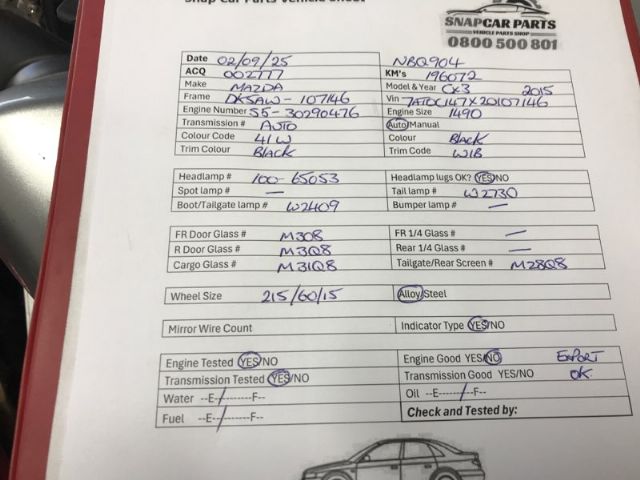 Snap Car Parts Vehicle Sheet
SNAPCAR PARTS
VEHICLE PARTS SHOP
0800 500 801
Date 02/09/25 NBQ904
ACQ 002777 KM's 196072
Make MAZDA Model & Year CX3 2015
Frame DK5AW - 107146 Vin 7AT0C147X20107146
Engine Number S5-30290476 Engine Size 1490
Transmission # AUTO Auto/Manual
Colour Code 41W Colour BLACK
Trim Colour BLACK Trim Code W1B
Headlamp # 100-65053 Headlamp lugs OK? YES/NO
Spot lamp # — Tail lamp # W2730
Boot/Tailgate lamp # W2409 Bumper lamp # —
FR Door Glass # M3Q8 FR 1/4 Glass # —
R Door Glass # M3Q8 Rear 1/4 Glass # —
Cargo Glass # M31Q8 Tailgate/Rear Screen # M28Q8
Wheel Size 215/60/15 Alloy/Steel
Mirror Wire Count Indicator Type YES/NO
Engine Tested YES/NO Engine Good YES/NO EXPORT
Transmission Tested YES/NO Transmission Good YES/NO OK
Water --E-/-------F-- Oil --E-----/--F--
Fuel --E-/-------F-- Check and Tested by: